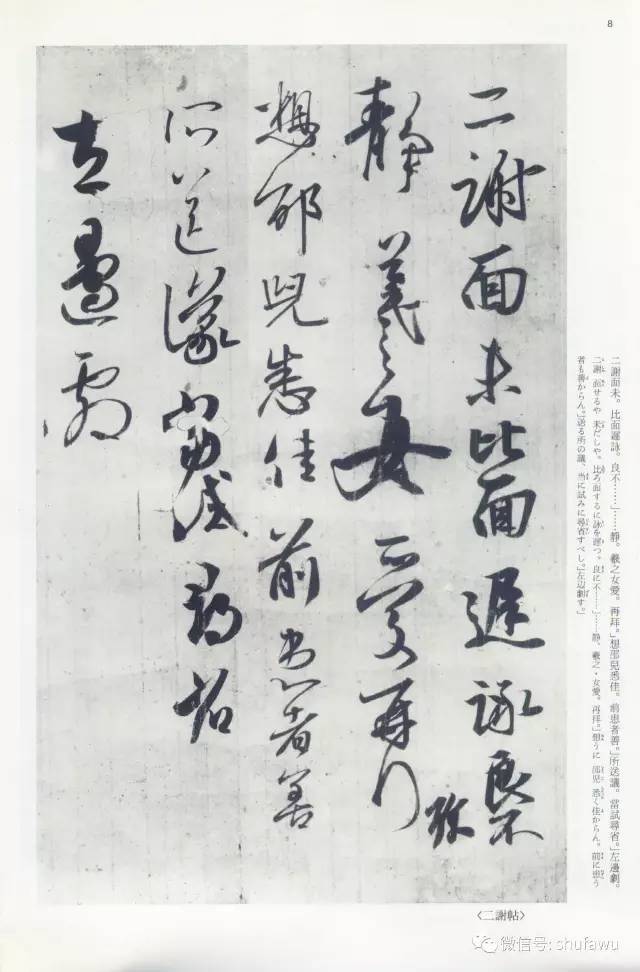 8
二謝面未比面遲詠良不
靜羲之女愛再拜
想邵兒悉佳前患者善
所送議當試尋省
左邊劇
二謝面未。比面遲詠。良不……」……靜。羲之女愛。再拜。」想邵兒悉佳。前患者善。」所送議。當試尋省。」左邊劇。
二謝 面せるや 未だしや。比ろ面するに詠を遲つ。良に不……」……靜、羲之・女愛。再拜。」想うに 邵兒 悉く佳からん。前に患う
者も善からん。」送る所の議、当に試みに尋省すべし。」左辺劇す。」
〈二謝帖〉
微信号: shufawu